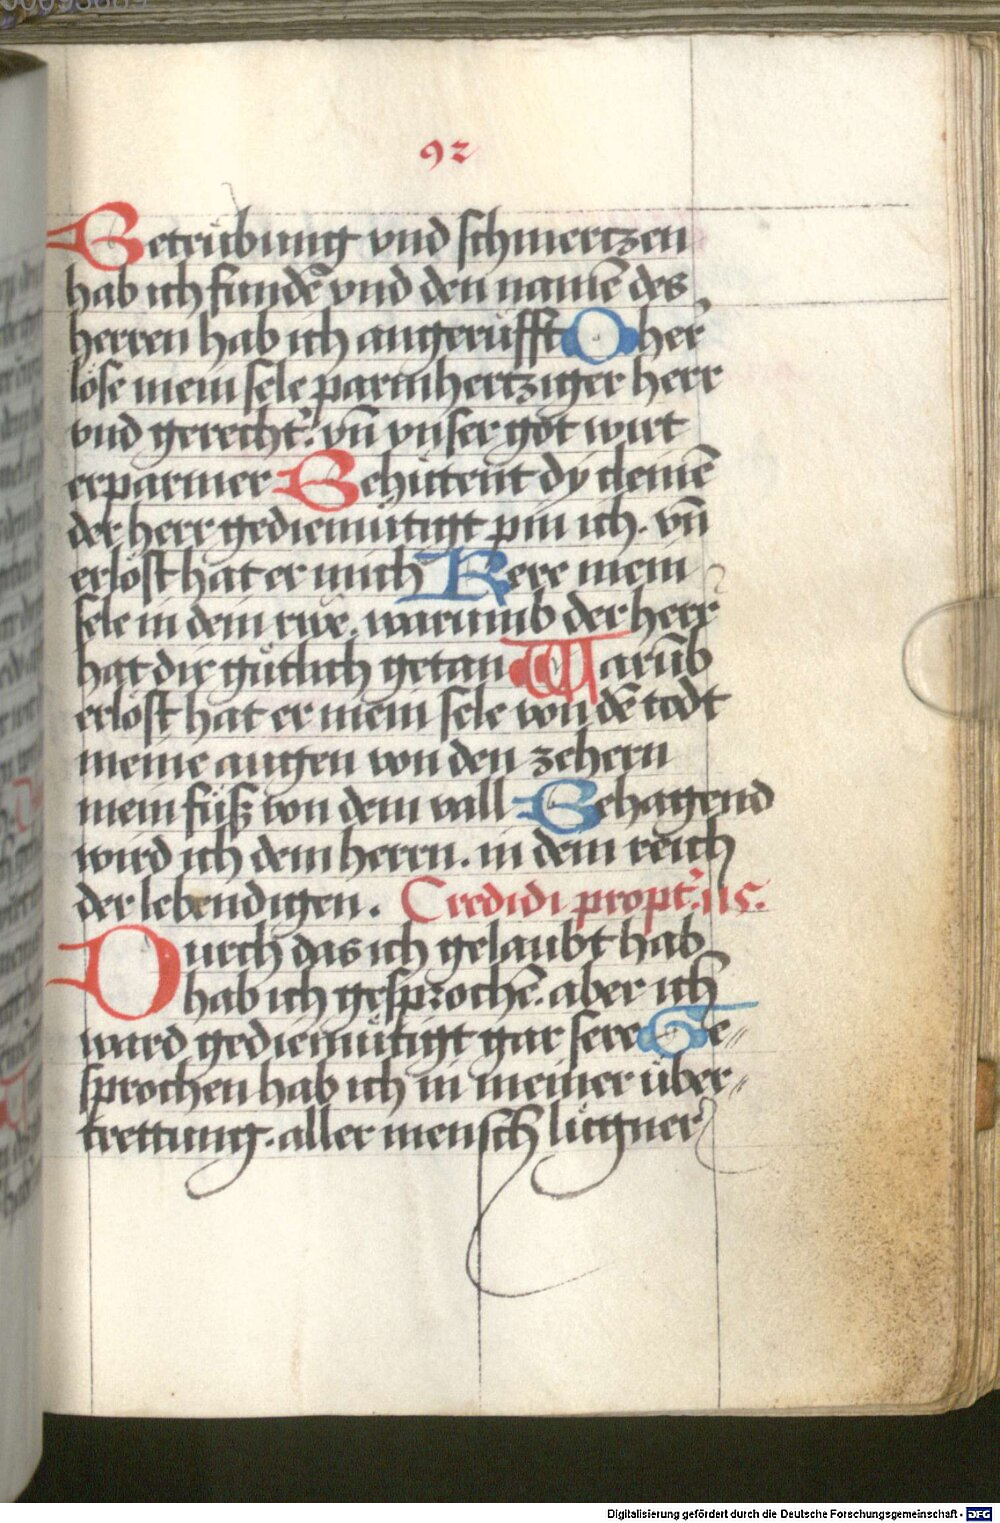 92
Betrübung vnd schmertzen
hab ich fundē vnd den namē des
herren hab ich angerüfft O her
löse mein sele parmhertziger herr
vnd gerecht. vn̄ vnser got wirt
erparmer Behütent dy cleinē
der herr gediemütigt pin ich. vn̄
erlöst hat er mich Kere mein
sele in dein rwe. warumb der herr
hat dir gütlich getan Warūb
erlöst hat er mein sele von dē todt
meine augen von den zehern
mein füß von dem vall Behagend
wird ich dem herrn. in dem reich
der lebendigen. Credidi propt. 115.
Durch das ich gelaubt hab
hab ich gesprochē. aber ich
ward gediemütigt gar sere Ge⸗
sprochen hab ich in meiner über⸗
trettung. aller mensch lügner
Digitalisierung gefördert durch die Deutsche Forschungsgemeinschaft - DFG